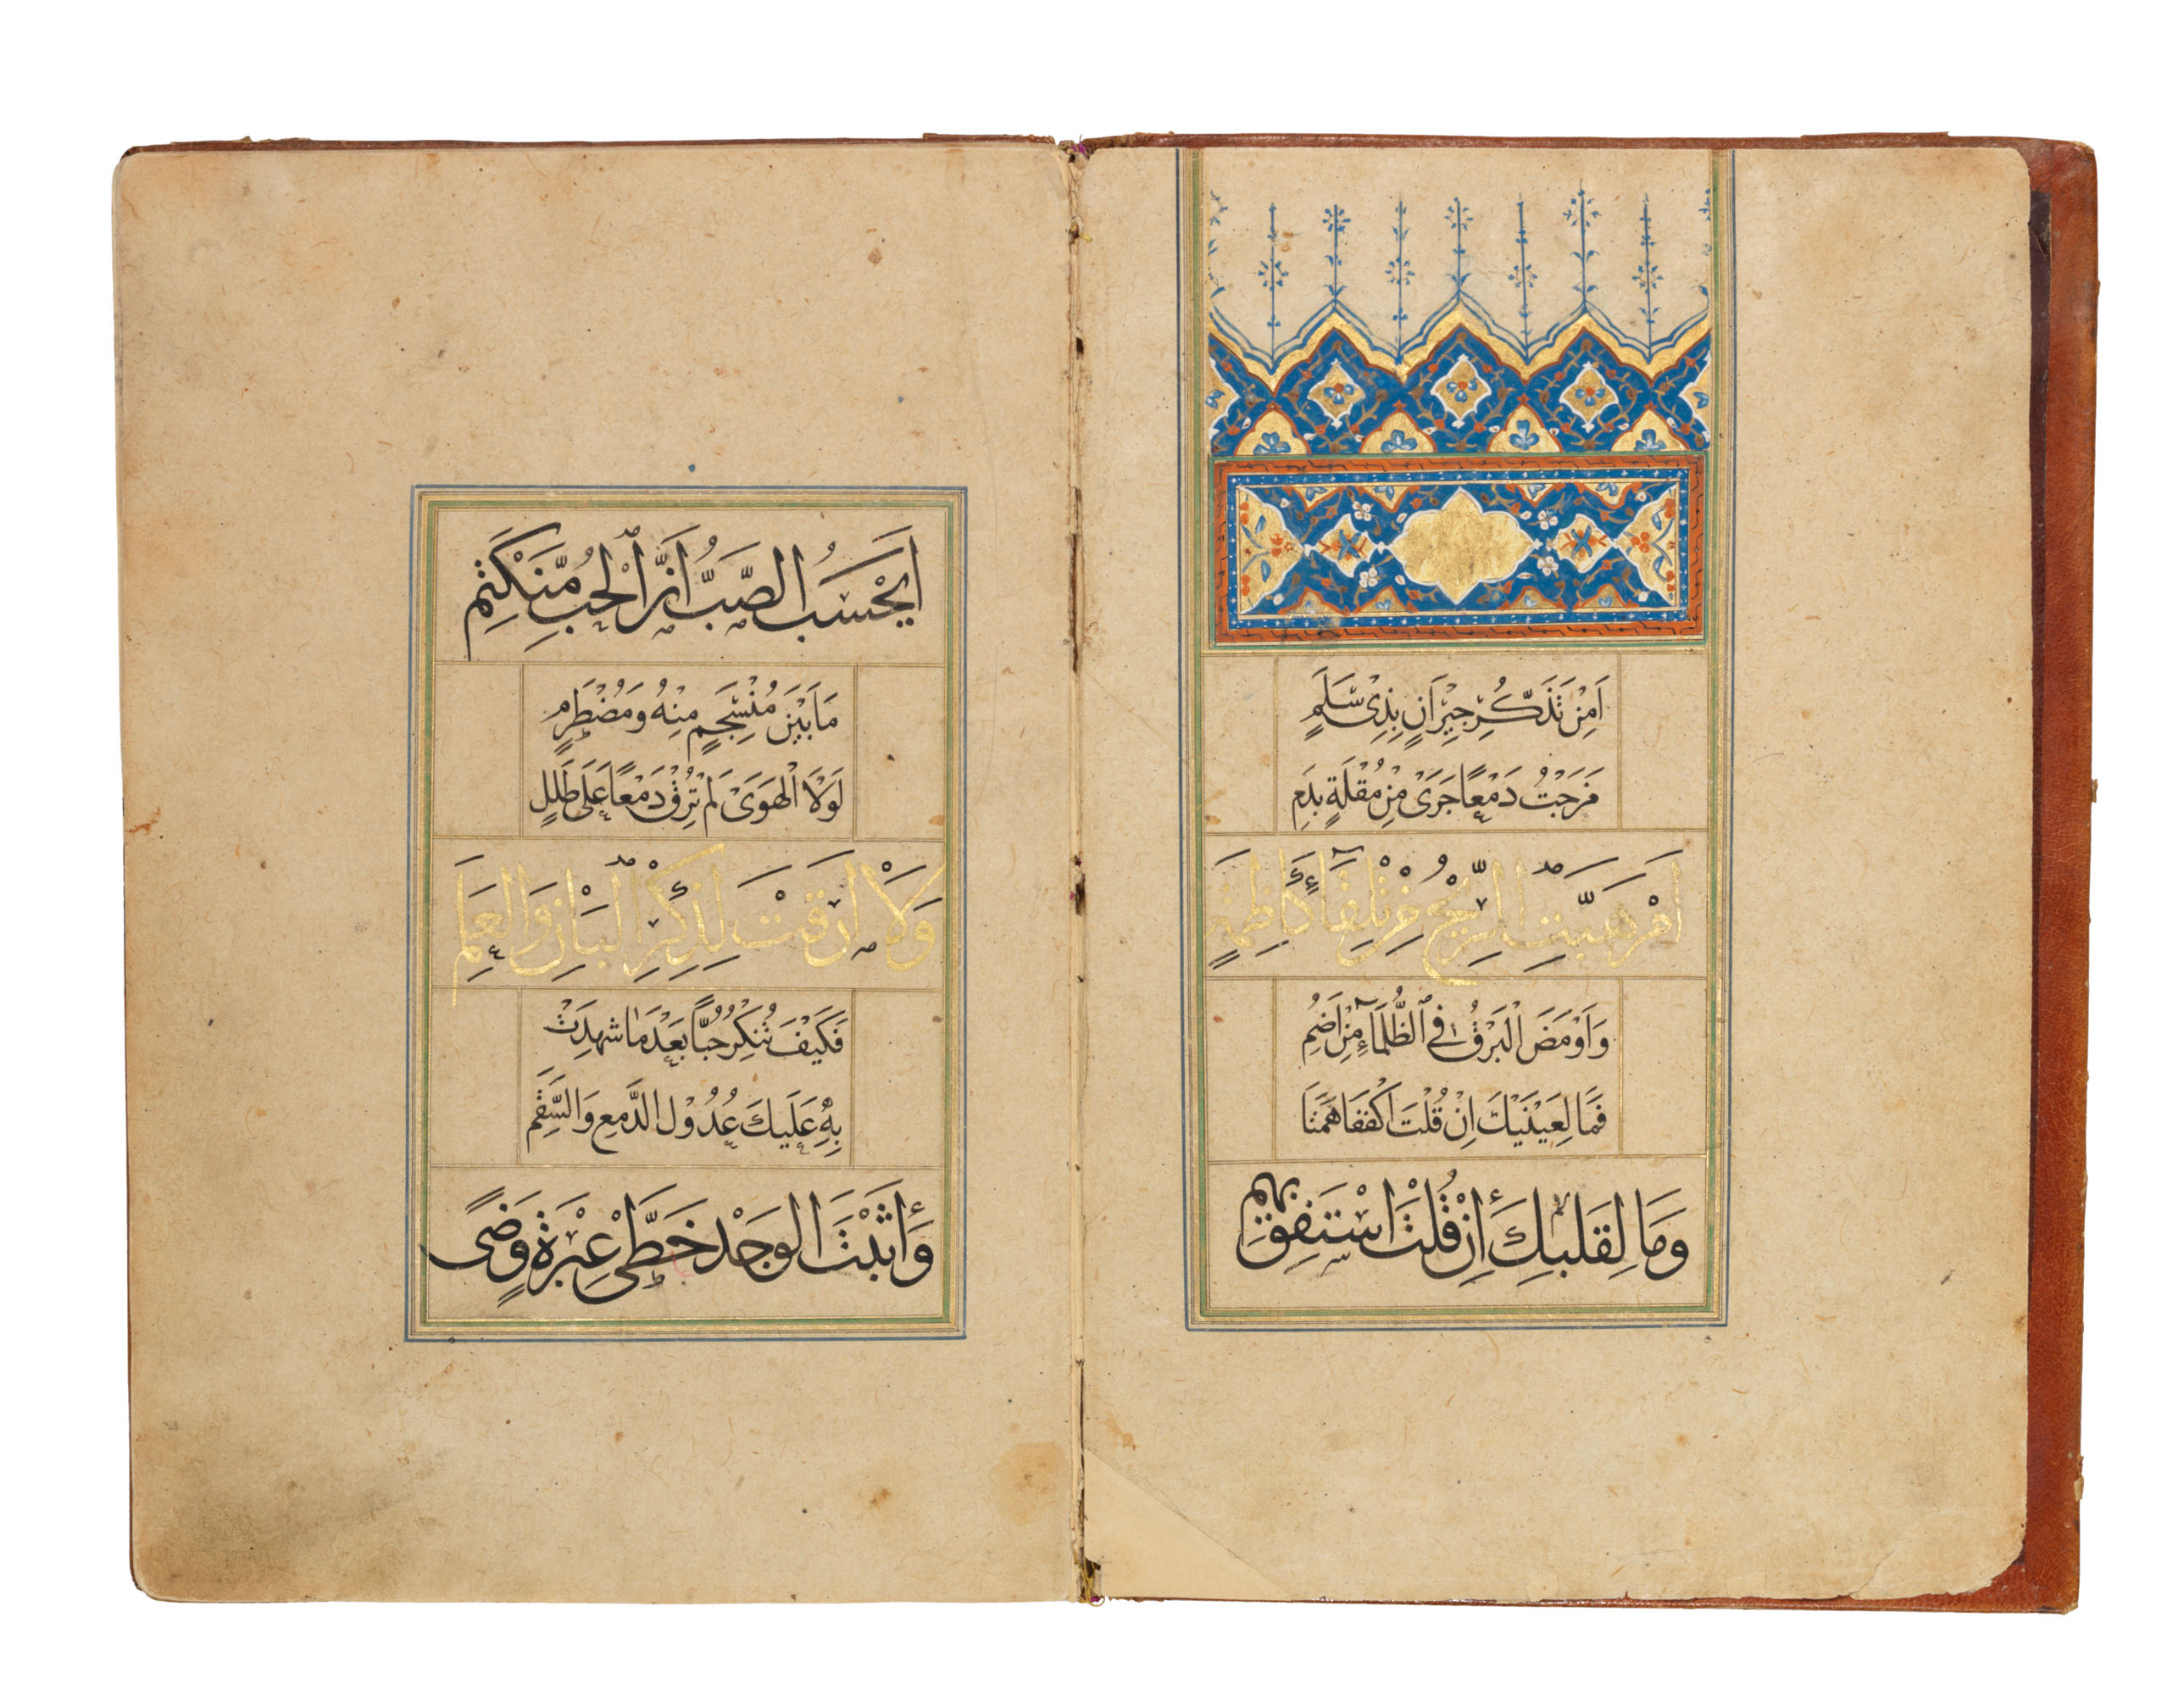 اَمِنْ تَذَكُّرِ جِيْرَانٍ بِذِيْ سَلَمٍ
مَزَجْتَ دَمْعًا جَرَىْ مِنْ مُقْلَةٍ بِدَمِ
اَمْ هَبَّتِ الرِّيْحُ مِنْ تِلْقَآءِ كَاظِمَةٍ
وَاَوْمَضَ الْبَرْقُ فِي الظُّلْمَآءِ مِنْ اِضَمِ
فَمَا لِعَيْنَيْكَ اِنْ قُلْتَ اكْفُفَا هَمَتَا
وَمَا لِقَلْبِكَ اِنْ قُلْتَ اسْتَفِقْ يَهِمِ
اَيَحْسَبُ الصَّبُّ اَنَّ الْحُبَّ مُنْكَتِمٌ
مَا بَيْنَ مُنْسَجِمٍ مِنْهُ وَمُضْطَرِمِ
لَوْلَا الْهَوَىْ لَمْ تُرِقْ دَمْعًا عَلَى طَلَلٍ
وَلَا اَرِقْتَ لِذِكْرِ الْبَانِ وَالْعَلَمِ
فَكَيْفَ تُنْكِرُ حُبًّا بَعْدَ مَا شَهِدَتْ
بِهِ عَلَيْكَ عُدُوْلُ الدَّمْعِ وَالسَّقَمِ
وَأَثْبَتَ الْوَجْدُ خَطَّيْ عِبْرَةٍ وَضَىً